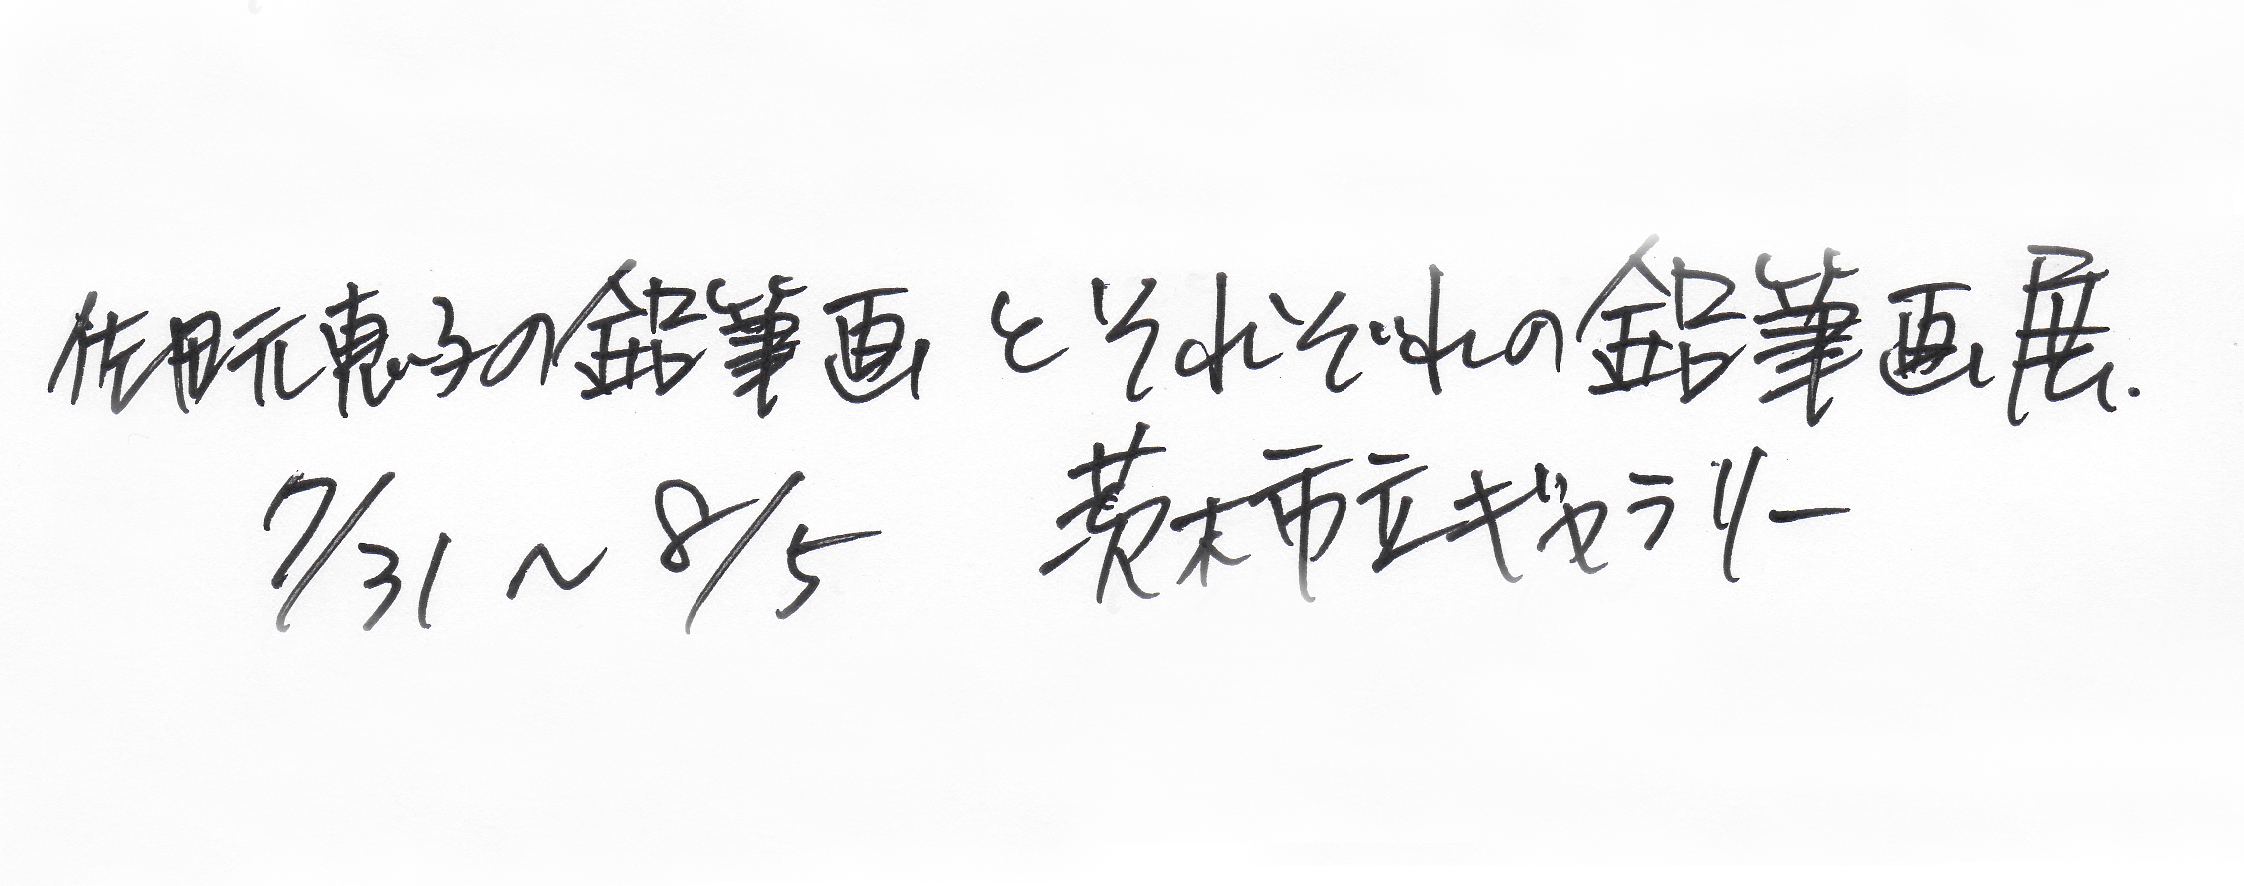 佐田元恵子の鉛筆画とそれぞれの鉛筆画展.
7/31～8/5 茨木市立ギャラリー